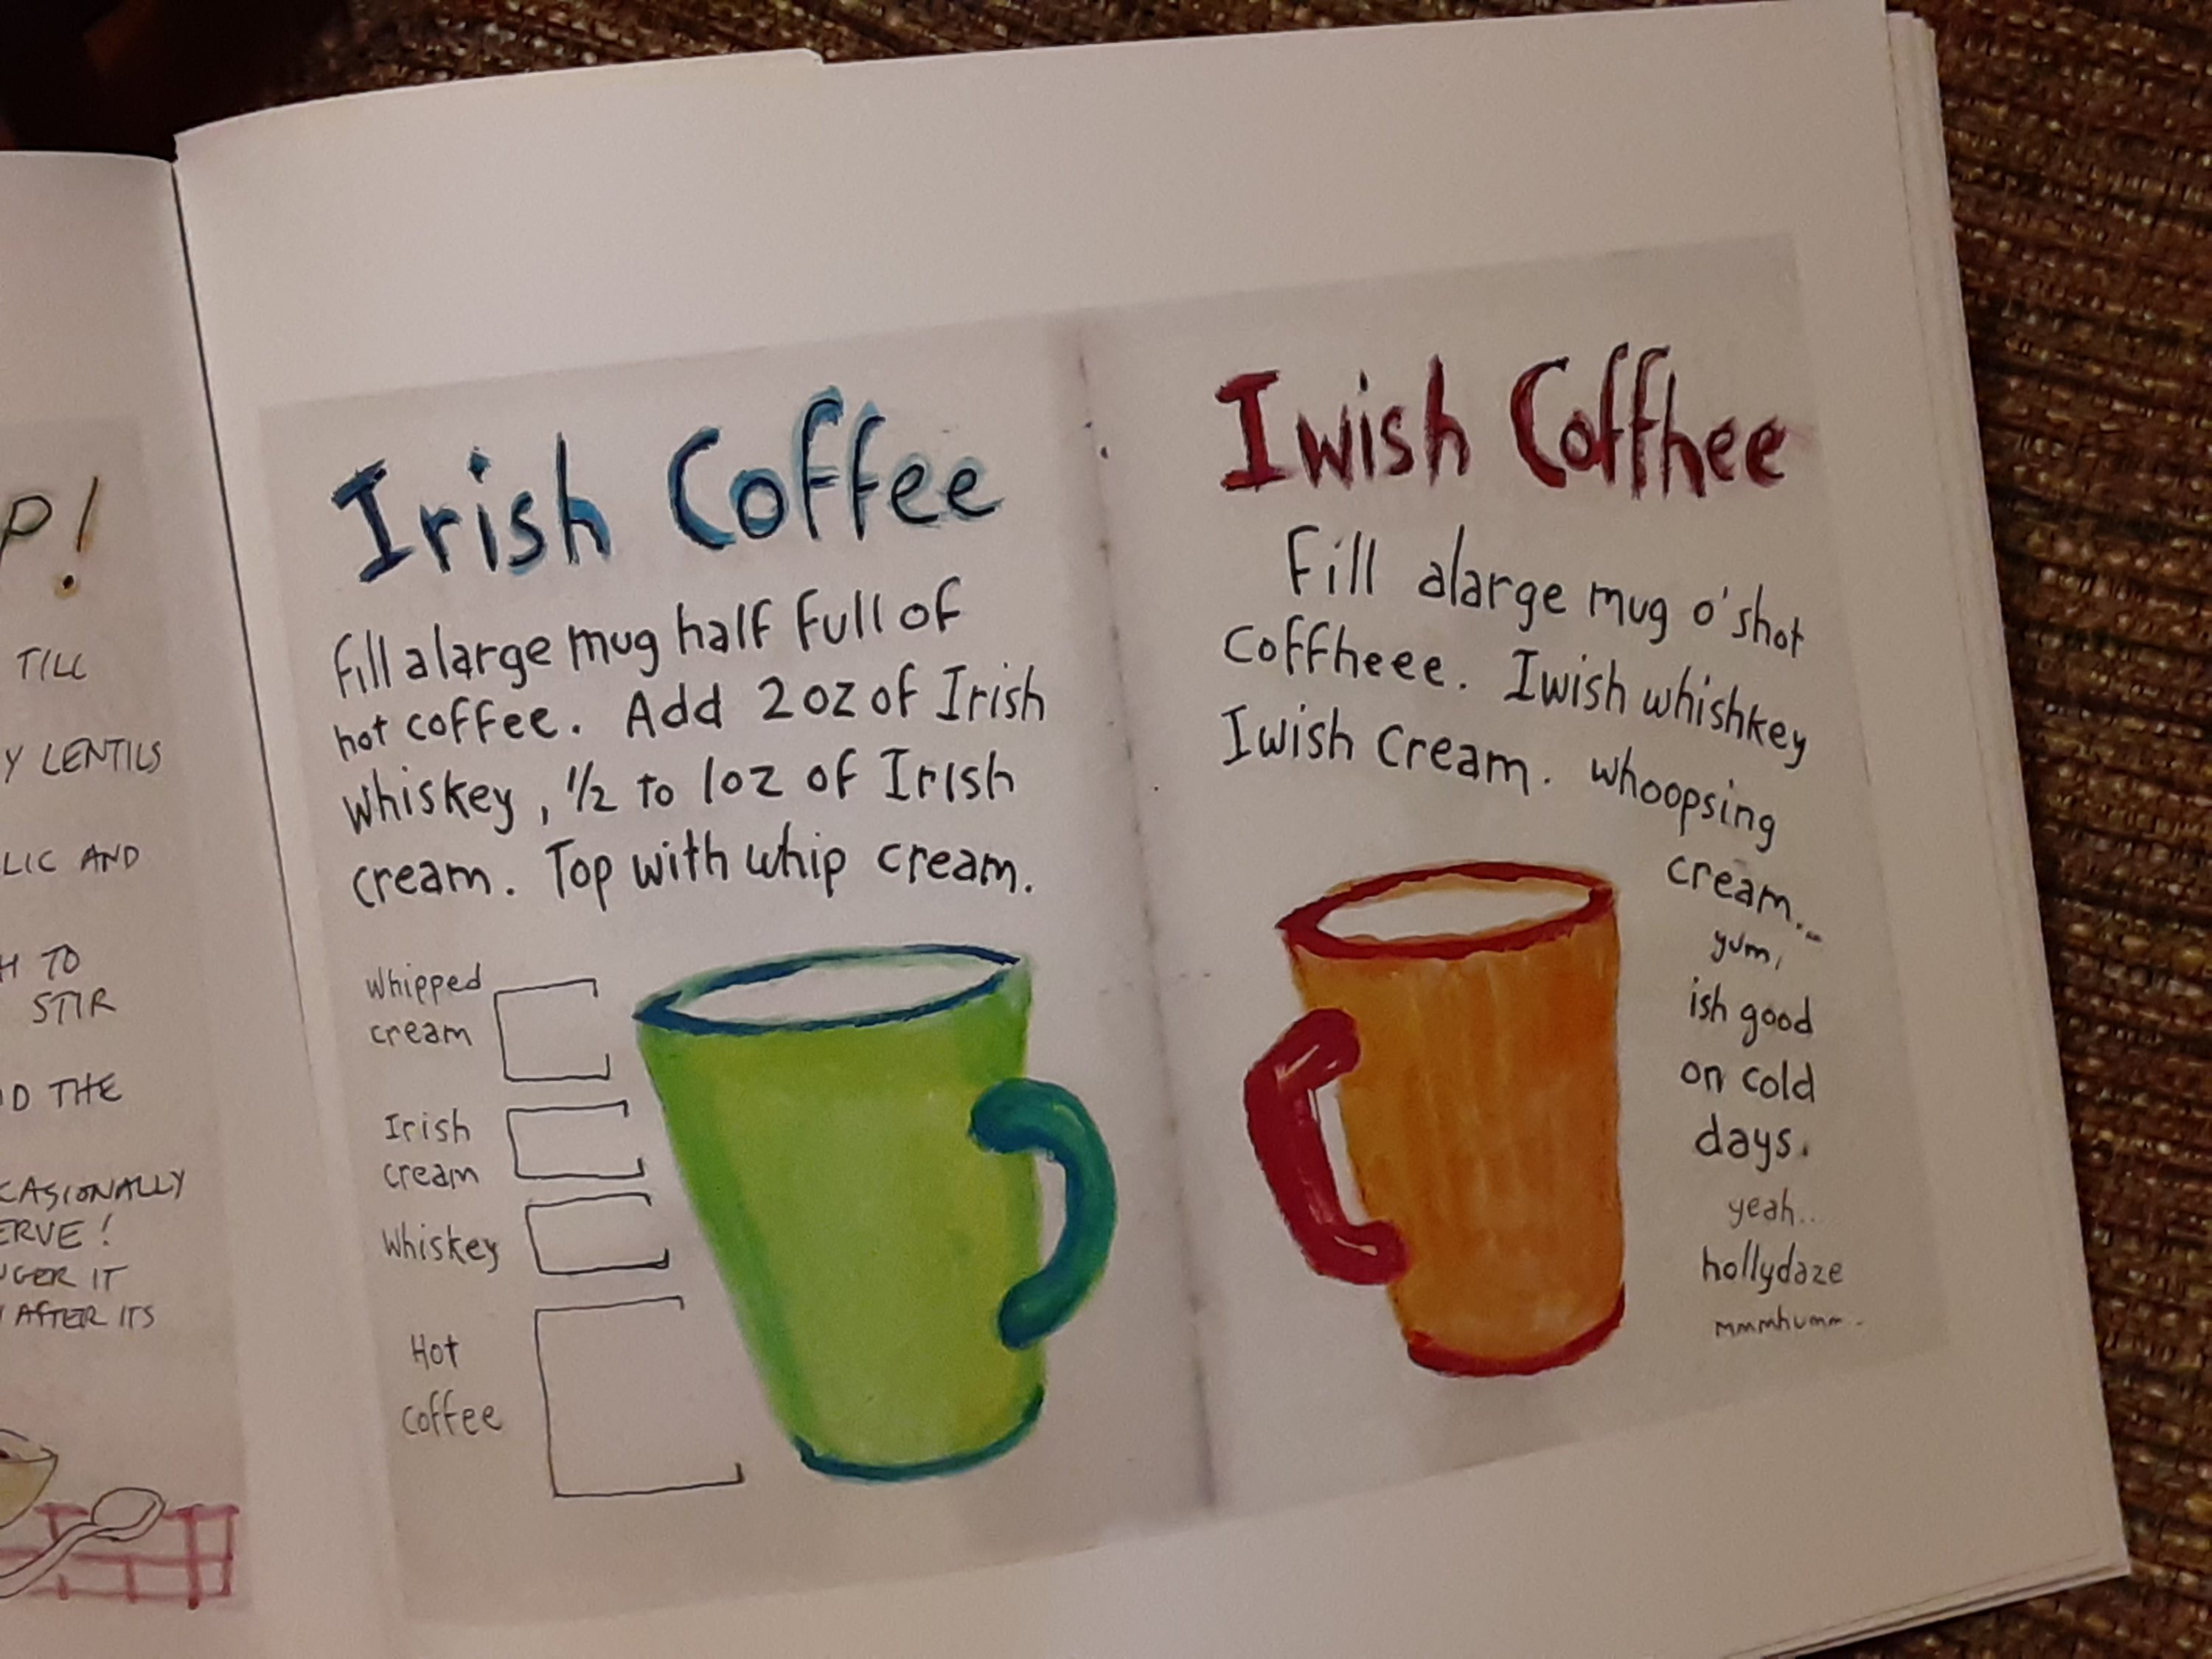 P!
TILL
Y LENTILS
LIC AND
H TO
STIR
D THE
CASIONALLY
ERVE!
GER IT
AFTER ITS
Irish Coffee
Fill a large mug half full of
hot coffee. Add 2 oz of Irish
whiskey, 1/2 to 1oz of Irish
cream. Top with whip cream.
Whipped
cream
Irish
cream
Whiskey
Hot
coffee
Iwish Coffhee
Fill alarge mug o'shot
Coffheee. Iwish whishkey
Iwish Cream. Whoopsing
cream...
yum,
ish good
on cold
days.
yeah..
hollydaze
mmmhumm..